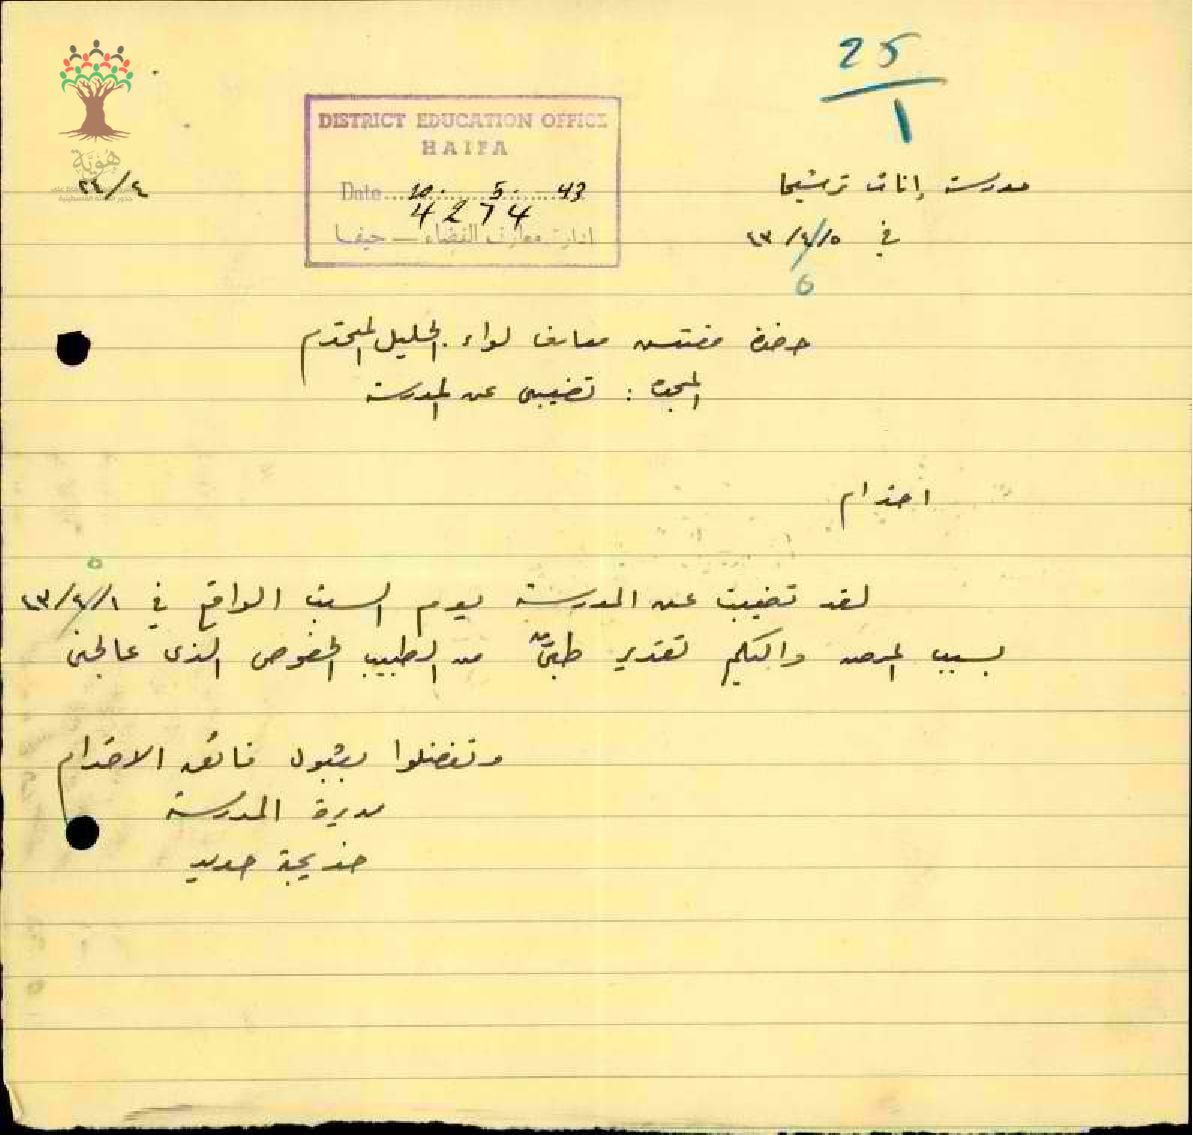 25
1
DISTRICT EDUCATION OFFICE
HAIFA
Date 10 5 43
4274
ادارة معارف القضاء — حيفا
هُوِيَّة
٢٤/٤
مدرسة إناث ترشيحا
في ٤٣/٤/٥
حضرة مفتش معارف لواء الجليل المحترم
: تغيبي عن المدرسة
احترام
لقد تغيبت عن المدرسة يوم السبت الواقع في ٤٣/٤/١
٥
بسبب المرض واليكم تقرير طبي من الطبيب الذي عالجني
وتفضلوا بقبول فائق الاحترام
مديرة المدرسة
خديجة حديد